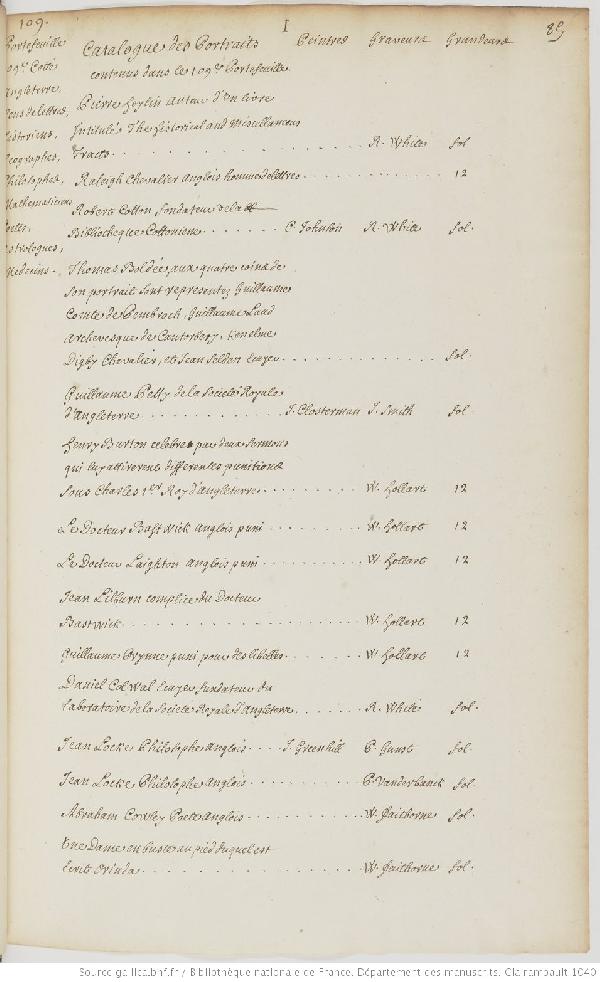 109.
I
85
Portefeuille
109.e Cotté
Angleterre,
Gens de lettres,
Historiens,
Geographes,
Philosophes,
Mathematiciens
Poetes,
Astrologues,
Medecins.
Catalogue des Portraits Peintres Graveurs Grandeurs
contenus dans le 109.e Portefeuille
Pierre Heylin Auteur d'un livre
Intitulé The historical and Miscellaneous
Tracts . . . R. White fol
Raleigh Chevalier Anglois homme de lettres . . . 12
Robert Cotton, fondateur de la
Bibliotheque Cottoniene . . . C. Johnson R. White fol.
Thomas Boldée, aux quatre coins de
son portrait sont representez Guillaume
Comte de Pembrock, Guillaume Laud
Archevesque de Canterbery, Kenelme
Digby Chevalier, et Jean Selden Ecuyer . . . fol.
Guillaume Petty de la Societé Royale
d'Angleterre . . . J. Closterman J. Smith fol.
Henry Burton celebre par deux sermons
qui luy attirerent differentes punitions
sous Charles 1.er Roy d'Angleterre . . . W. Hollart 12
Le Docteur Bastwick Anglois puni . . . W. Hollart 12
Le Docteur Laighton Anglois puni . . . W. Hollart 12
Jean Lilburn complice du Docteur
Bastwick . . . W. Hollart 12
Guillaume Prynne puni pour des libelles . . . W. Hollart 12
Daniel Colwal Ecuyer, fondateur du
Laboratoire de la Societé Royale d'Angleterre . . . R. White fol.
Jean Locke Philosophe Anglois . . . J. Greenhill P. Gunst fol.
Jean Locke Philosophe Anglois . . . P. Vanderbanck fol.
Abraham Cowley Poete Anglois . . . W. Faithorne fol.
Une Dame en buste au pied duquel est
Ecrit Orinda . . . W. Faithorne fol.
Source gallica.bnf.fr / Bibliothèque nationale de France. Département des manuscrits. Clairambault 1040